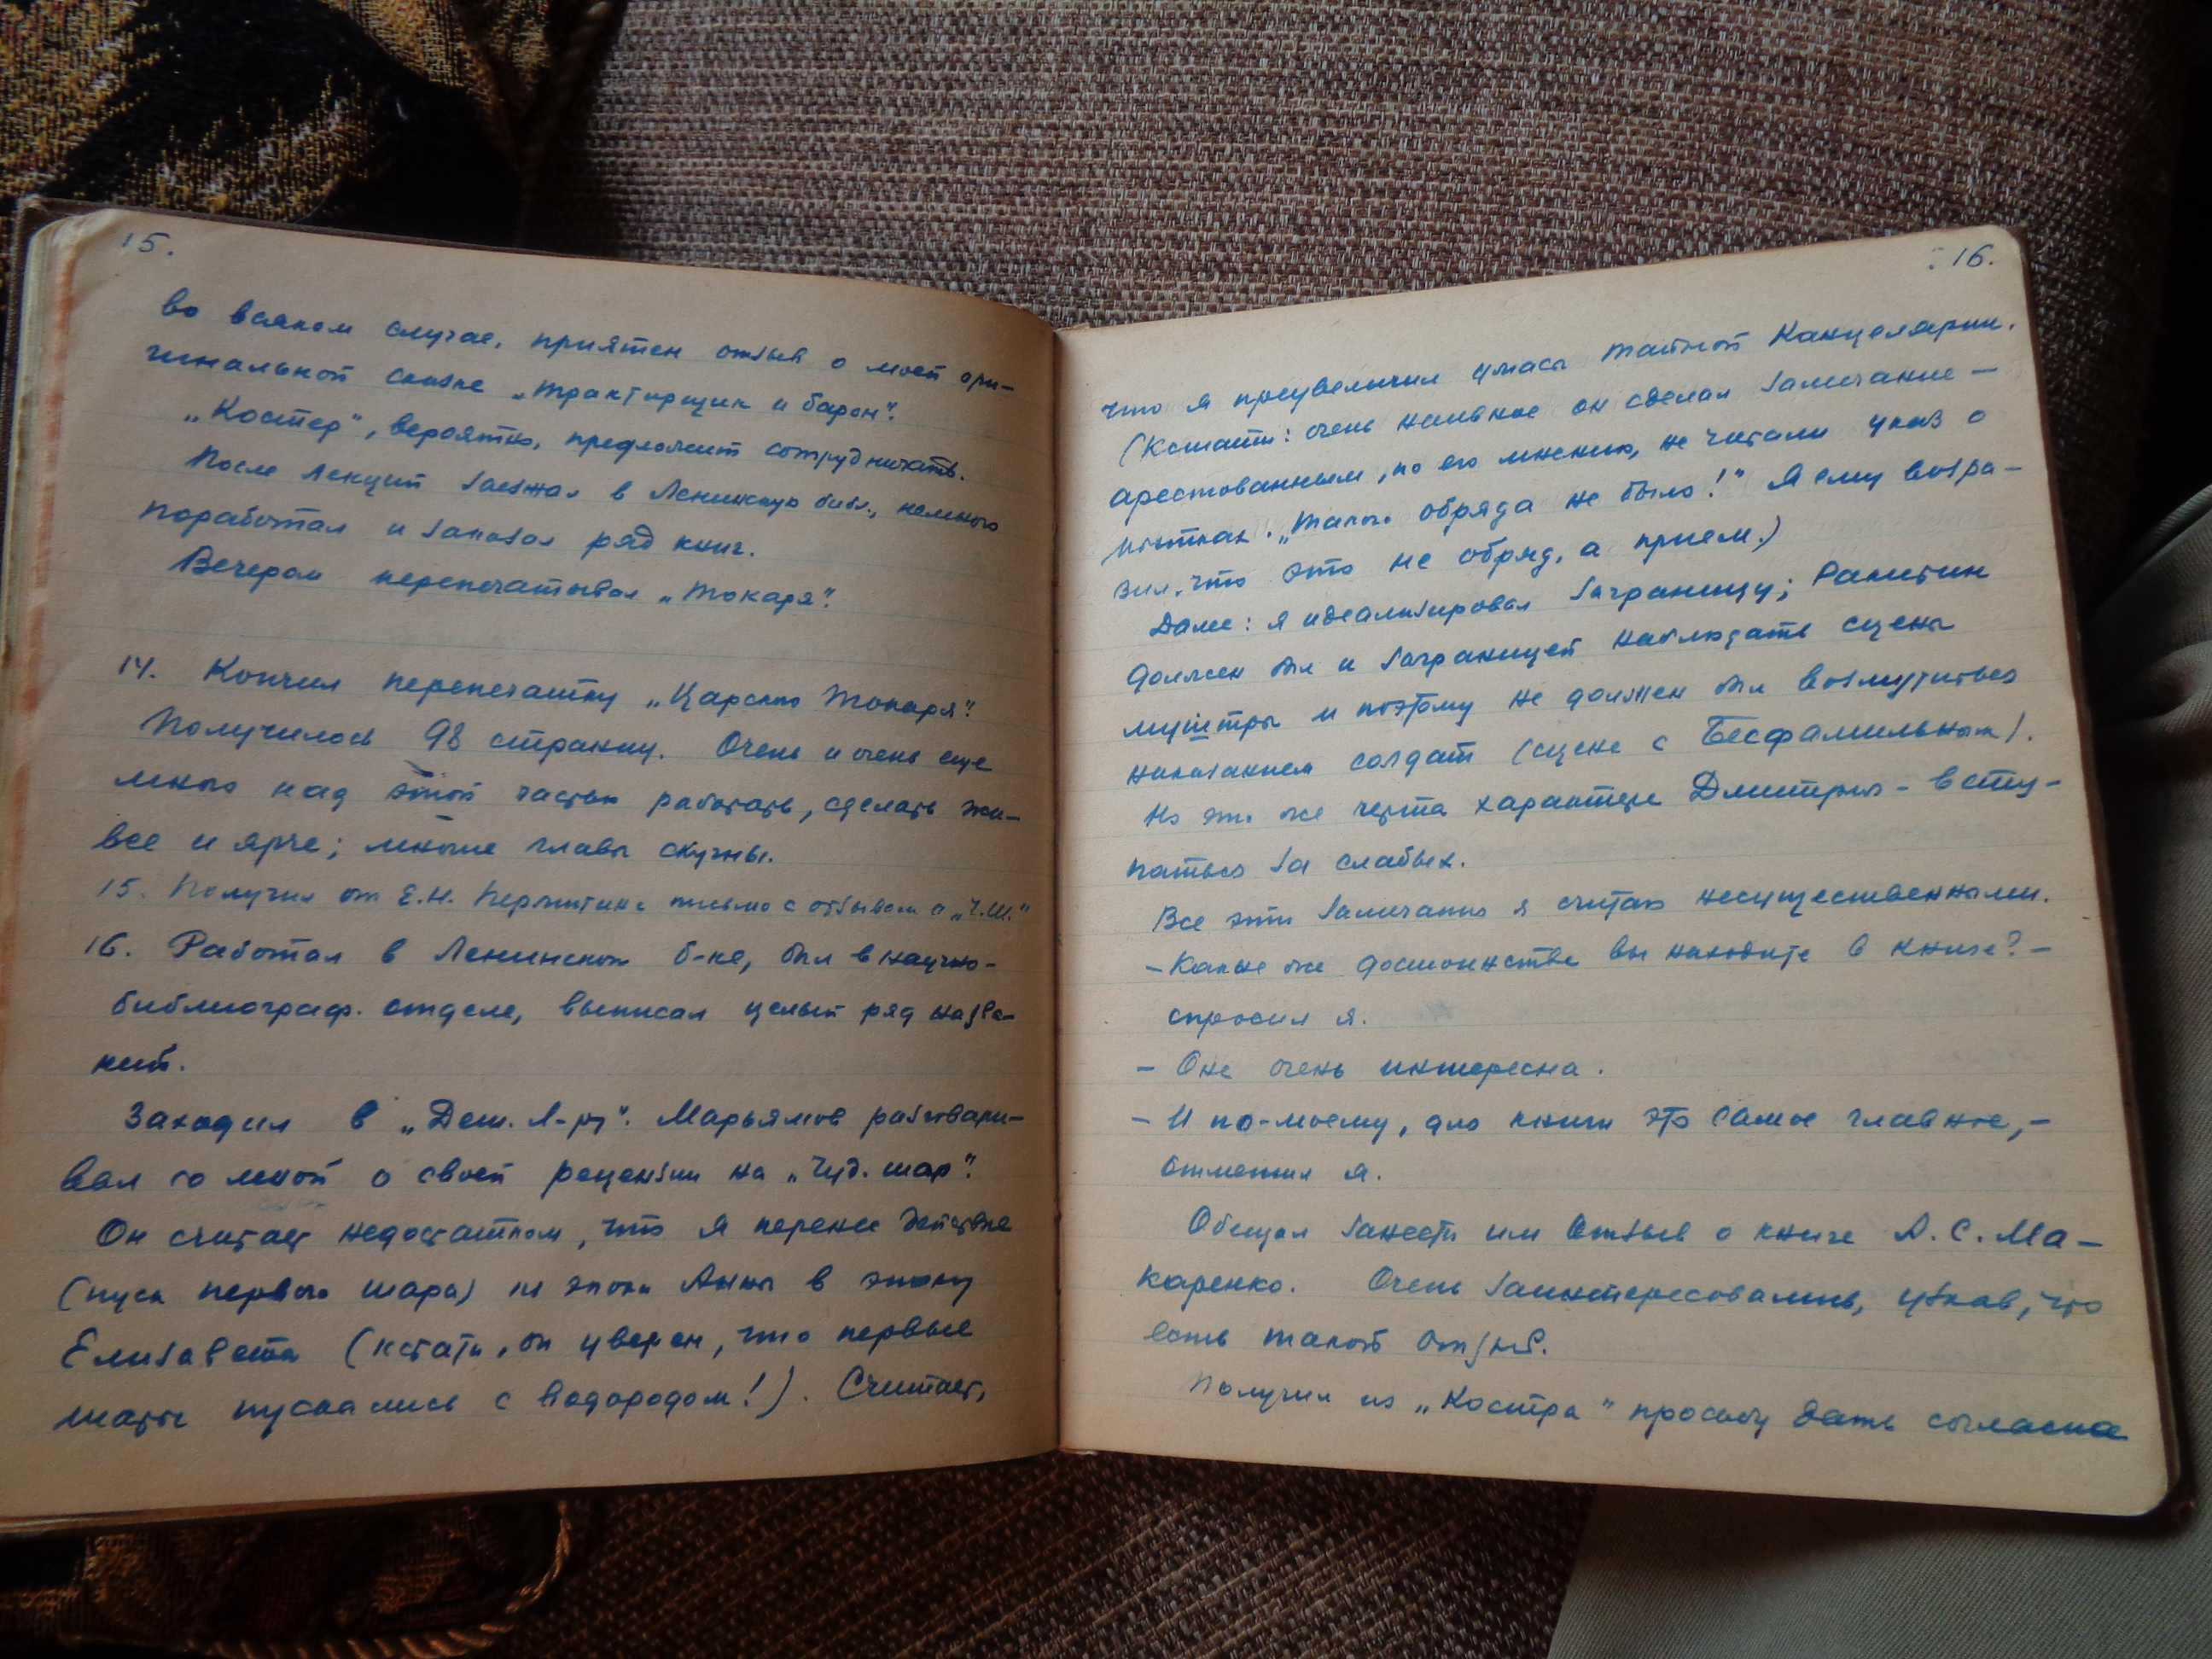 15.
во всяком случае, приятен отзыв о моей ори-
гинальной сказке „Трактирщик и барон“.
„Костер“, вероятно, предложит сотрудничать.
После лекций заезжал в Ленинскую библ., немного
поработал и заказал ряд книг.
Вечером перепечатывал „Токаря“.
14. Кончил перепечатку „Царского Токаря“.
Получилось 98 страниц. Очень и очень еще
много над этой частью работать, сделать жи-
вее и ярче; многие главы скучны.
15. Получил от Е.Н. письмо с отзывом о „Ч.Ш.“
16. Работал в Ленинской б-ке, был в научно-
библиограф. отделе, выписал целый ряд назва-
ний.
Заходил в „Дет. Л-ру“. Марьямов разговари-
вал со мной о своей рецензии на „Чуд. шар“.
Он считает недостатком, что я перенес действие
(пуск первого шара) из эпохи Анны в эпоху
Елизаветы (кстати, он уверен, что первые
шары пускались с водородом!). Считает,
16.
что я преувеличил ужасы Тайной Канцелярии.
(Кстати: очень наивное он сделал замечание –
арестованным, по его мнению, не читали указ о
пытках. „Такого обряда не было!“ Я ему возра-
зил, что это не обряд, а прием.)
Далее: я идеализировал заграницу; Ракитин
должен был и заграницей наблюдать сцены
муштры и поэтому не должен был возмутиться
наказанием солдат (сцена с Бесфамильным).
Но это же черта характера Дмитрия – всту-
паться за слабых.
Все эти замечания я считаю несущественными.
– Какие же достоинства вы находите в книге? –
спросил я.
– Она очень интересна.
– И по-моему, для книги это самое главное, –
отметил я.
Обещал занести им отзыв о книге А. С. Ма-
каренко. Очень заинтересовались, узнав, что
есть такой отзыв.
Получил из „Костра“ просьбу дать согласие